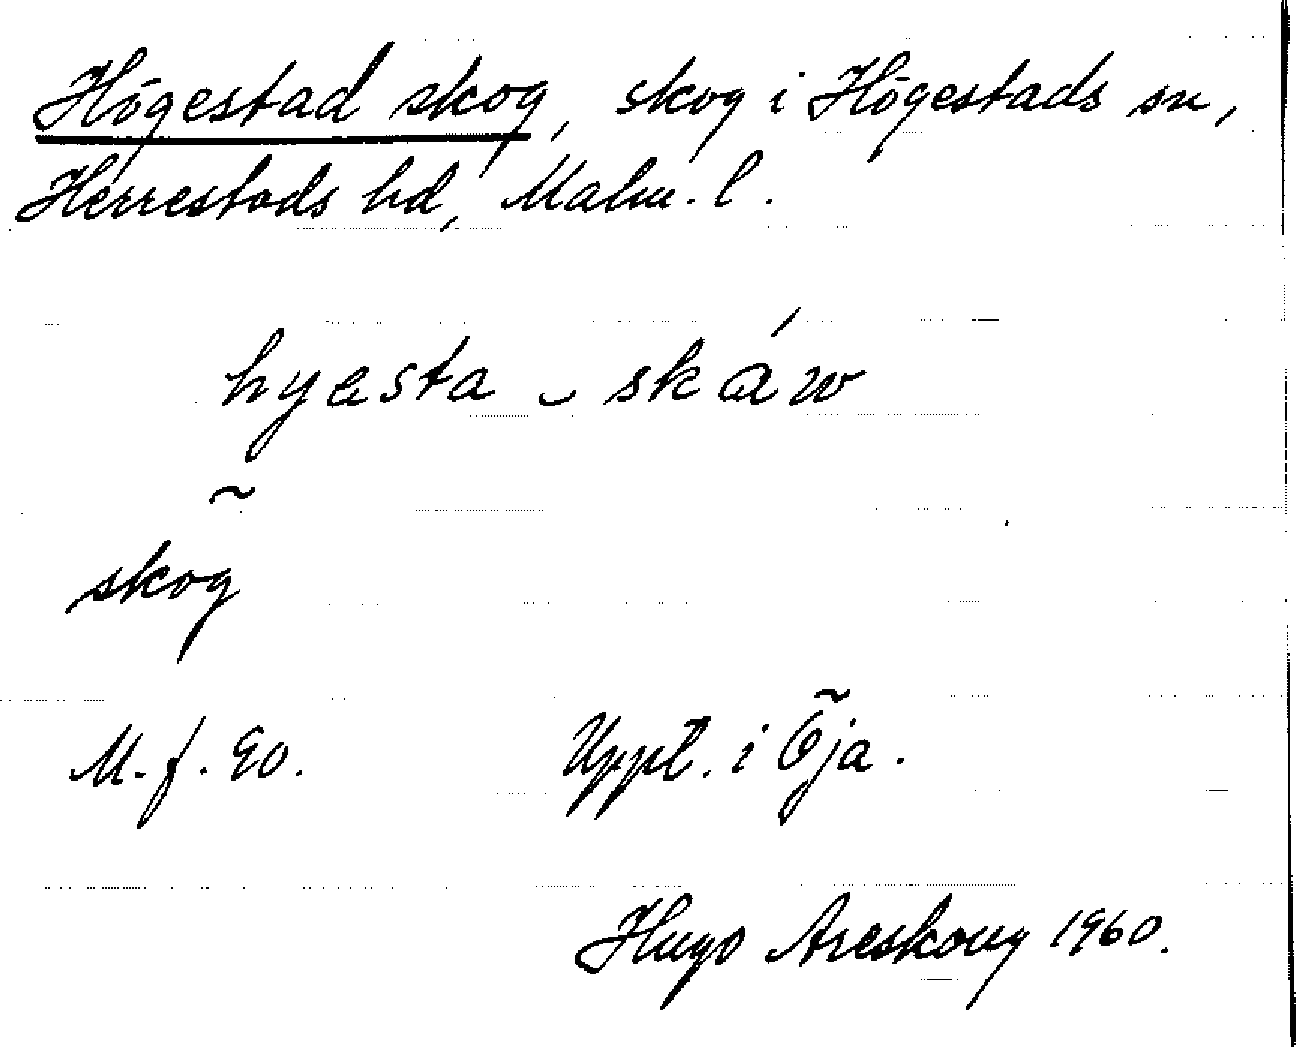 Högestad skog, skog i Högestads sn,
Herrestads hd, Malm. l.
hyasta ‿ skáw
~
skog
M. f. 90.
Uppt. i Öja.
Hugo Areskoug 1960.